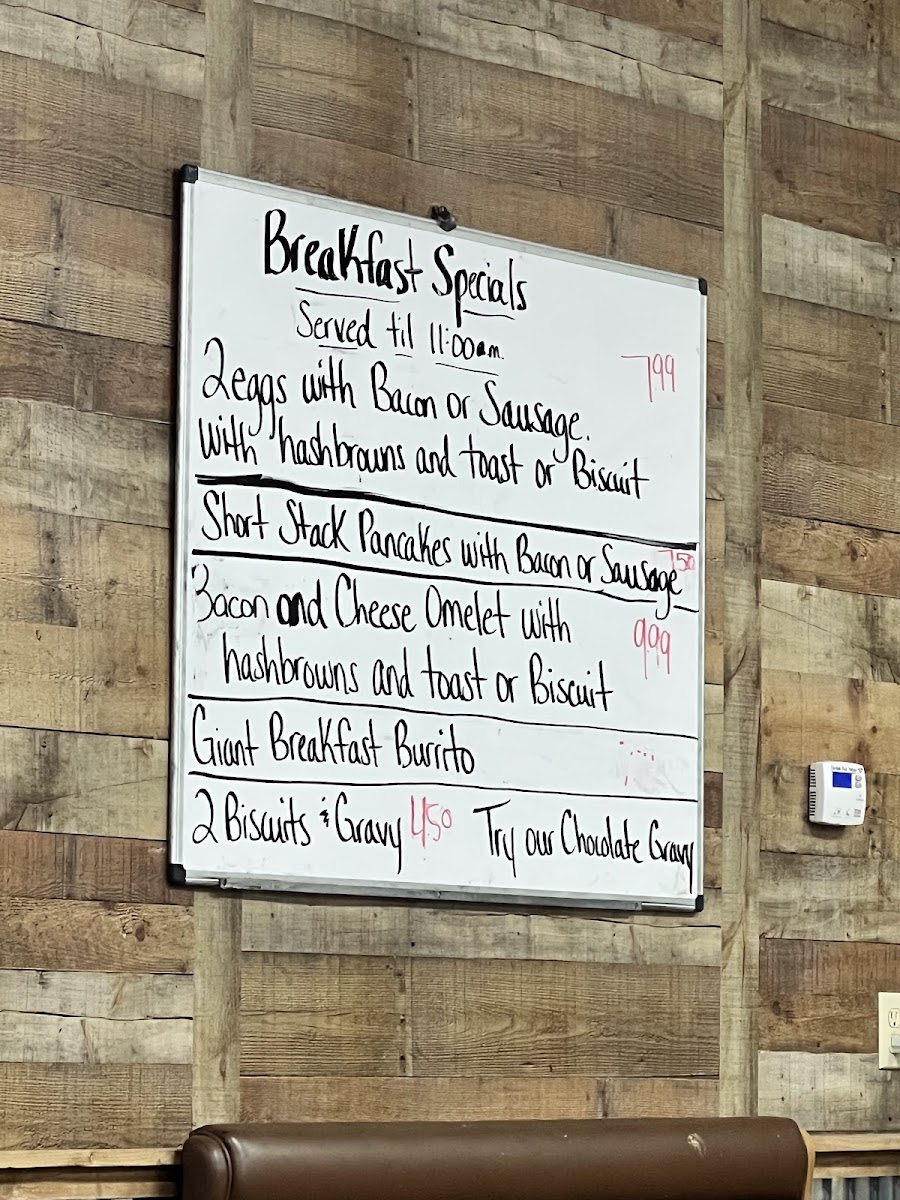 Breakfast Specials
Served til 11:00am.
7.99
2 eggs with Bacon or Sausage.
with hashbrowns and toast or Biscuit
Short Stack Pancakes with Bacon or Sausage 7.50
Bacon and Cheese Omelet with
9.99
hashbrowns and toast or Biscuit
Giant Breakfast Burrito
2 Biscuits & Gravy 4.50 Try our Chocolate Gravy